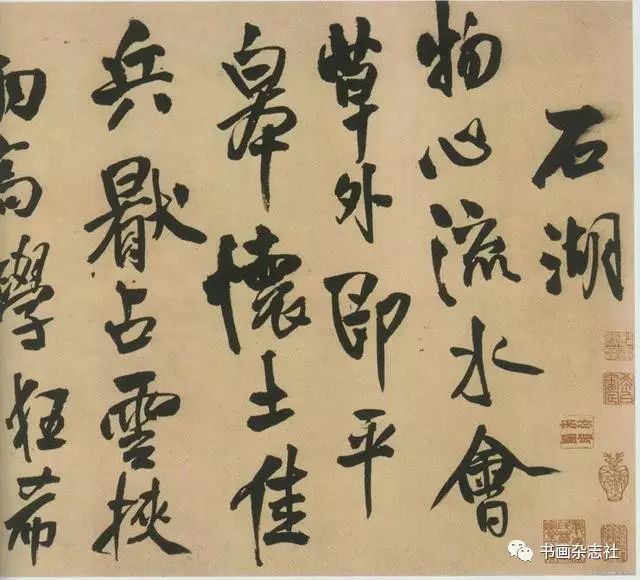 石湖
物心流水會
草外即平
皋懷土佳
兵猒占雲挾
高學狂希
书画杂志社